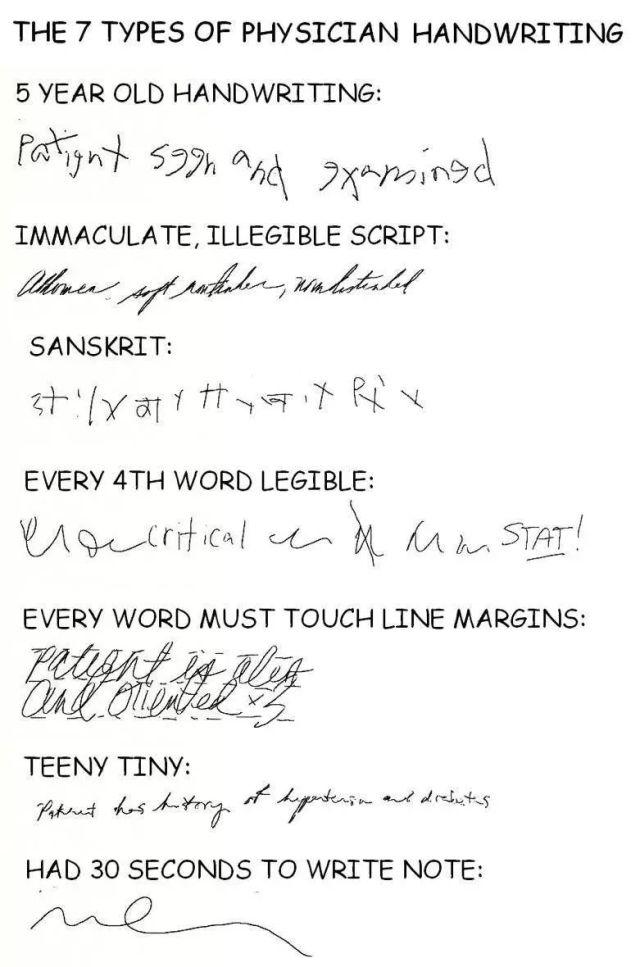 THE 7 TYPES OF PHYSICIAN HANDWRITING
5 YEAR OLD HANDWRITING:
Patignt sggn and gxamingd
IMMACULATE, ILLEGIBLE SCRIPT:
Abdomen soft nontender, nondistended
SANSKRIT:
EVERY 4TH WORD LEGIBLE:
critical STAT!
EVERY WORD MUST TOUCH LINE MARGINS:
Patient is alert
and oriented x3
TEENY TINY:
Patient has history of hypertension and diabetes
HAD 30 SECONDS TO WRITE NOTE: